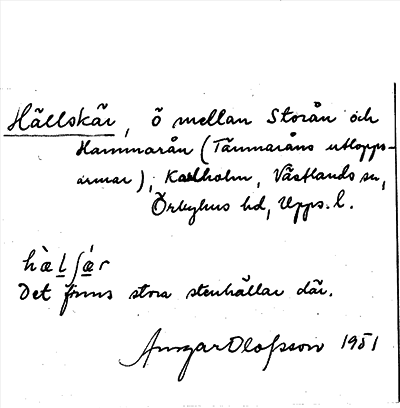 Hällskär, ö mellan Storån och
Hammarån (Tämnaråns utlopps-
armar), Karlholm, Västlands sn,
Örbyhus hd, Upps. l.
hὰlʃάr
Det finns stora stenhällar där.
Ansgar Olofsson 1951